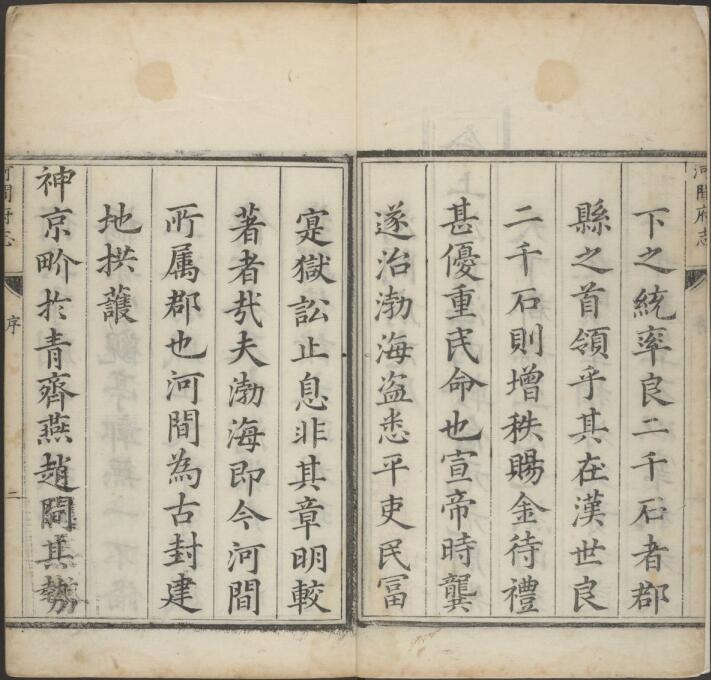 河間府志
下之統率良二千石者郡
縣之首領乎其在漢世良
二千石則增秩賜金待禮
甚優重民命也宣帝時龔
遂治渤海盗悉平吏民冨
寔獄訟止息非其章明較
著者㢤夫渤海即今河間
所属郡也河間為古封建
地拱䕶
神京畍扵青齊燕趙間其勢
河間府志
序
二